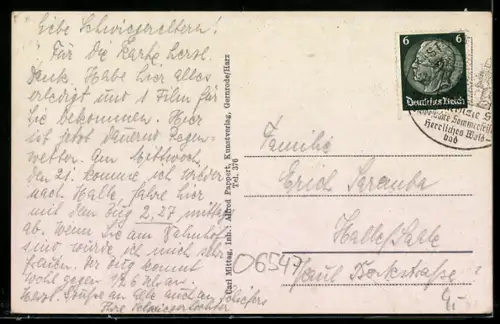 Liebe Schwiegereltern!
Für die Karte herzl.
Dank. Habe hier alles
erledigt und 1 Film für
Sie bekommen. Hier
ist jetzt dauernd Regen-
wetter. Am Mittwoch,
den 21. komme ich wieder
nach Halle, fahre hier
mit dem Zug 2,27 mittag
ab. Wenn Sie am Bahnhof
sind, würde ich mich sehr
freuen. Der Zug kommt
wohl gegen 1/2 6 Uhr an.
Herzl. Grüße an alle auch an
Ihre Schwiegertochter
Carl Mittag, Inh.: Alfred Pappert, Kunstverlag, Gernrode/Harz
Tel. 376
6 6
Deutsches Reich
Sommerfri
Herrliches Wald-
bad
Familie
Erich
Halle/Saale
Paul
06547